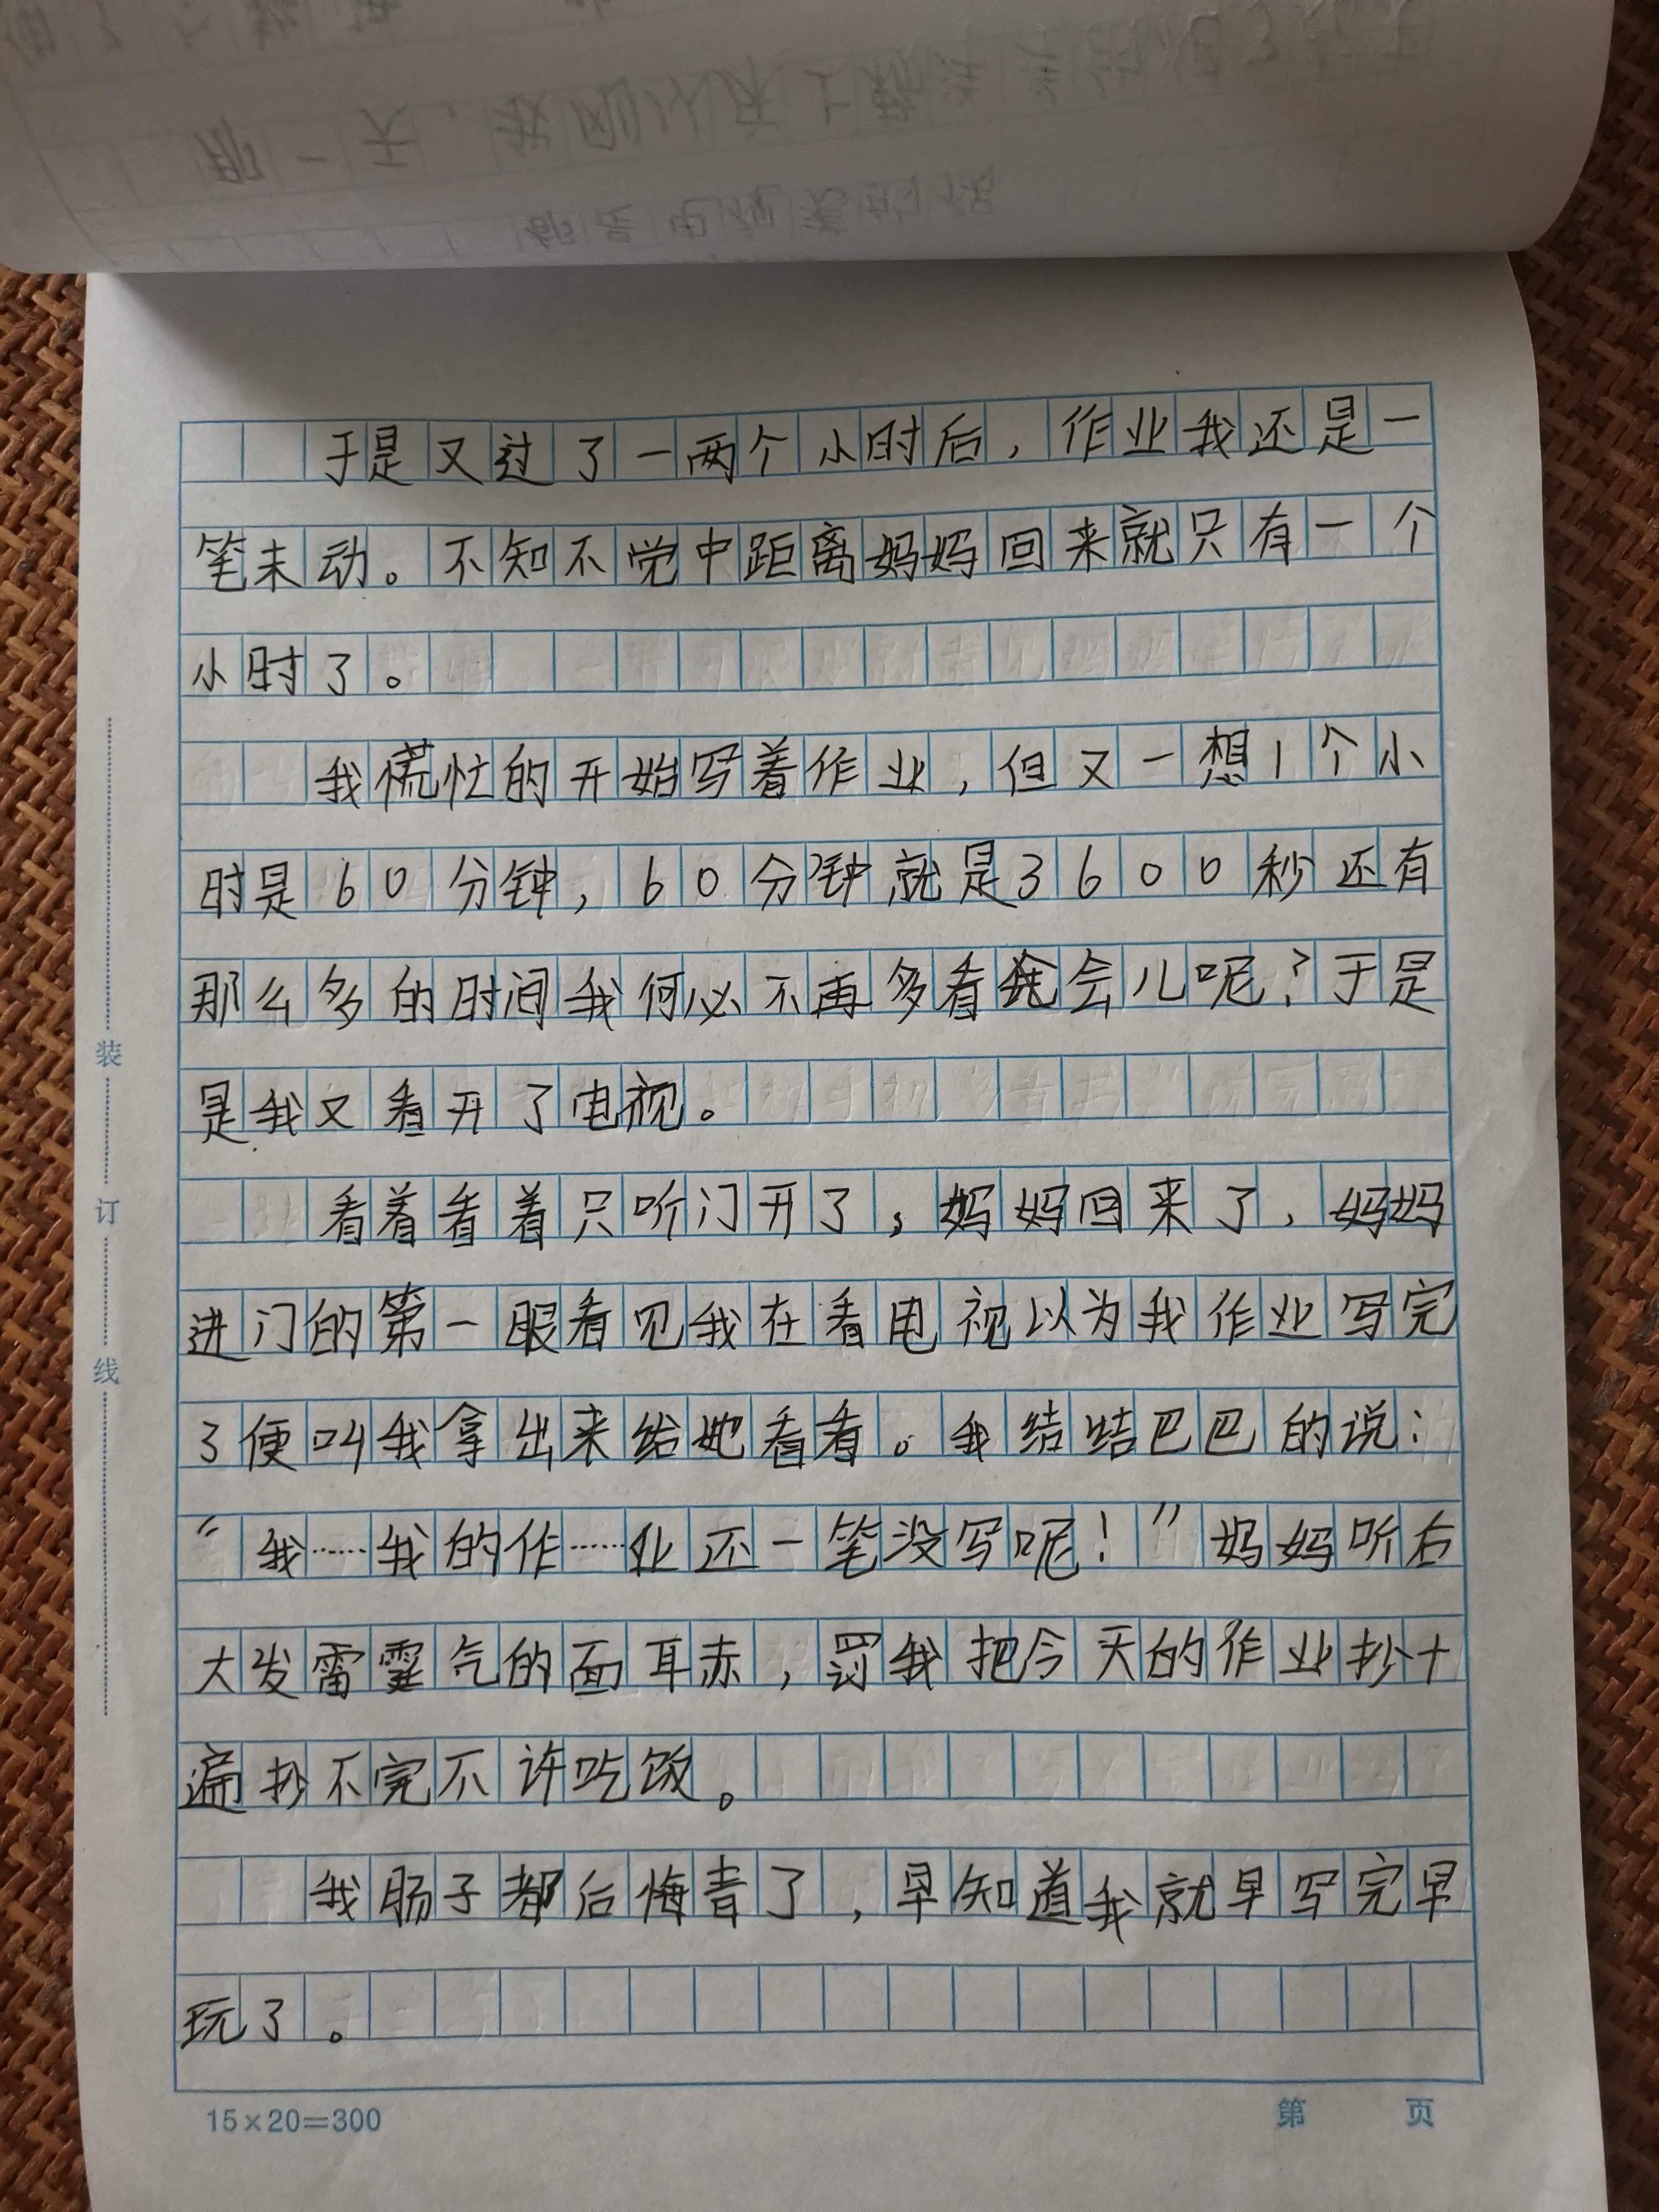 于是又过了一两个小时后，作业我还是一
笔未动。不知不觉中距离妈妈回来就只有一个
小时了。
我慌忙的开始写着作业，但又一想1个小
时是60分钟，60分钟就是3600秒还有
那么多的时间我何必不再多看会儿呢？于是
是我又看开了电视。
看着看着只听门开了，妈妈回来了，妈妈
进门的第一眼看见我在看电视以为我作业写完
了便叫我拿出来给她看看。我结结巴巴的说：
“我……我的作……业还一笔没写呢！”妈妈听后
大发雷霆气的面耳赤，罚我把今天的作业抄十
遍抄不完不许吃饭。
我肠子都后悔青了，早知道我就早写完早
玩了。
装
订
线
15×20=300
第 页